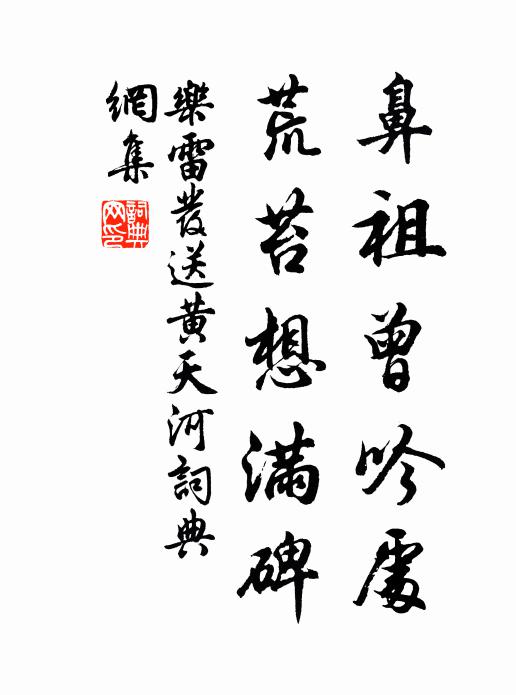 鼻祖曾吟處
荒苔想滿碑
樂雷發送黃天河詞典
網集
詞典
网印